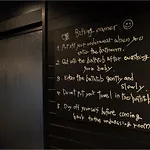 Bathing manner ☺
1. Put off your underwear above and
enter the bathroom.
2. Get into the bathtub after washing
your body
3. Enter the bathtub gently and
slowly
4. Do not put your towel in the bathtub
5. Dry off yourself before coming
back to the undressing room